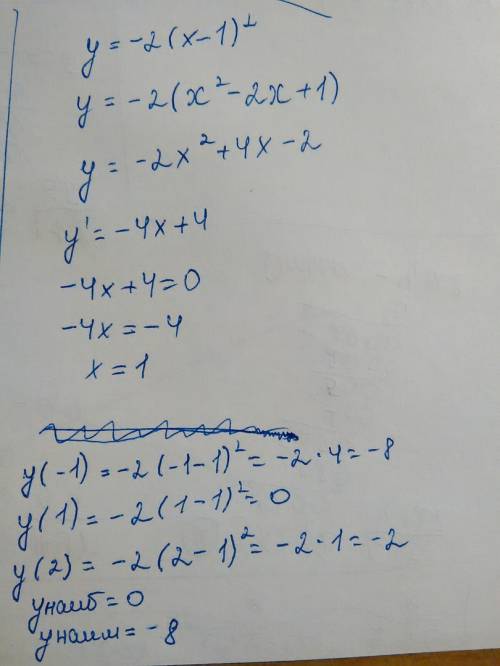 y = -2(x-1)²
y = -2(x²-2x+1)
y = -2x²+4x-2
y' = -4x+4
-4x+4=0
-4x = -4
x = 1
y(-1) = -2(-1-1)² = -2·4 = -8
y(1) = -2(1-1)² = 0
y(2) = -2(2-1)² = -2·1 = -2
yнаиб = 0
yнаим = -8